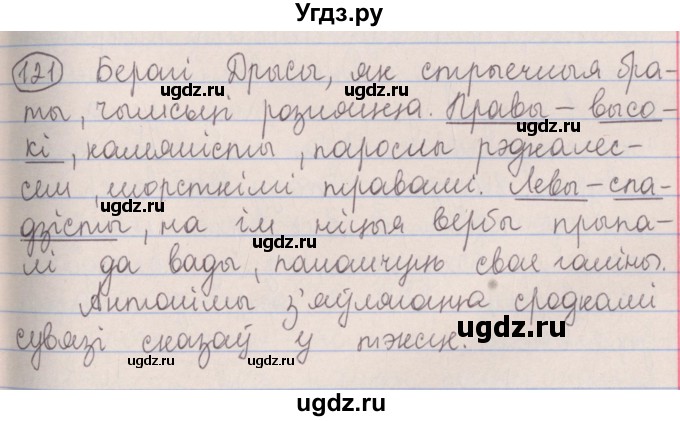 Угдз.ру
121 Берагі Дрысы, як стрыечныя бра-
ты, чымсьці розняцца. Правы – высо-
кі, камяністы, парослы рэдкалес-
сем, шорсткімі травамі. Левы – спа-
дзісты, на ім ніцыя вербы прыпа-
лі да вады, палошчуць свае галіны.
Антонімы з'яўляюцца сродкамі
сувязі сказаў у тэксце.
ugdz.ru
ugdz.ru
ugdz.ru
ugdz.ru
ugdz.ru
ugdz.ru
ugdz.ru
ugdz.ru
ugdz.ru
ugdz.ru
ugdz.ru
ugdz.ru
ugdz.ru